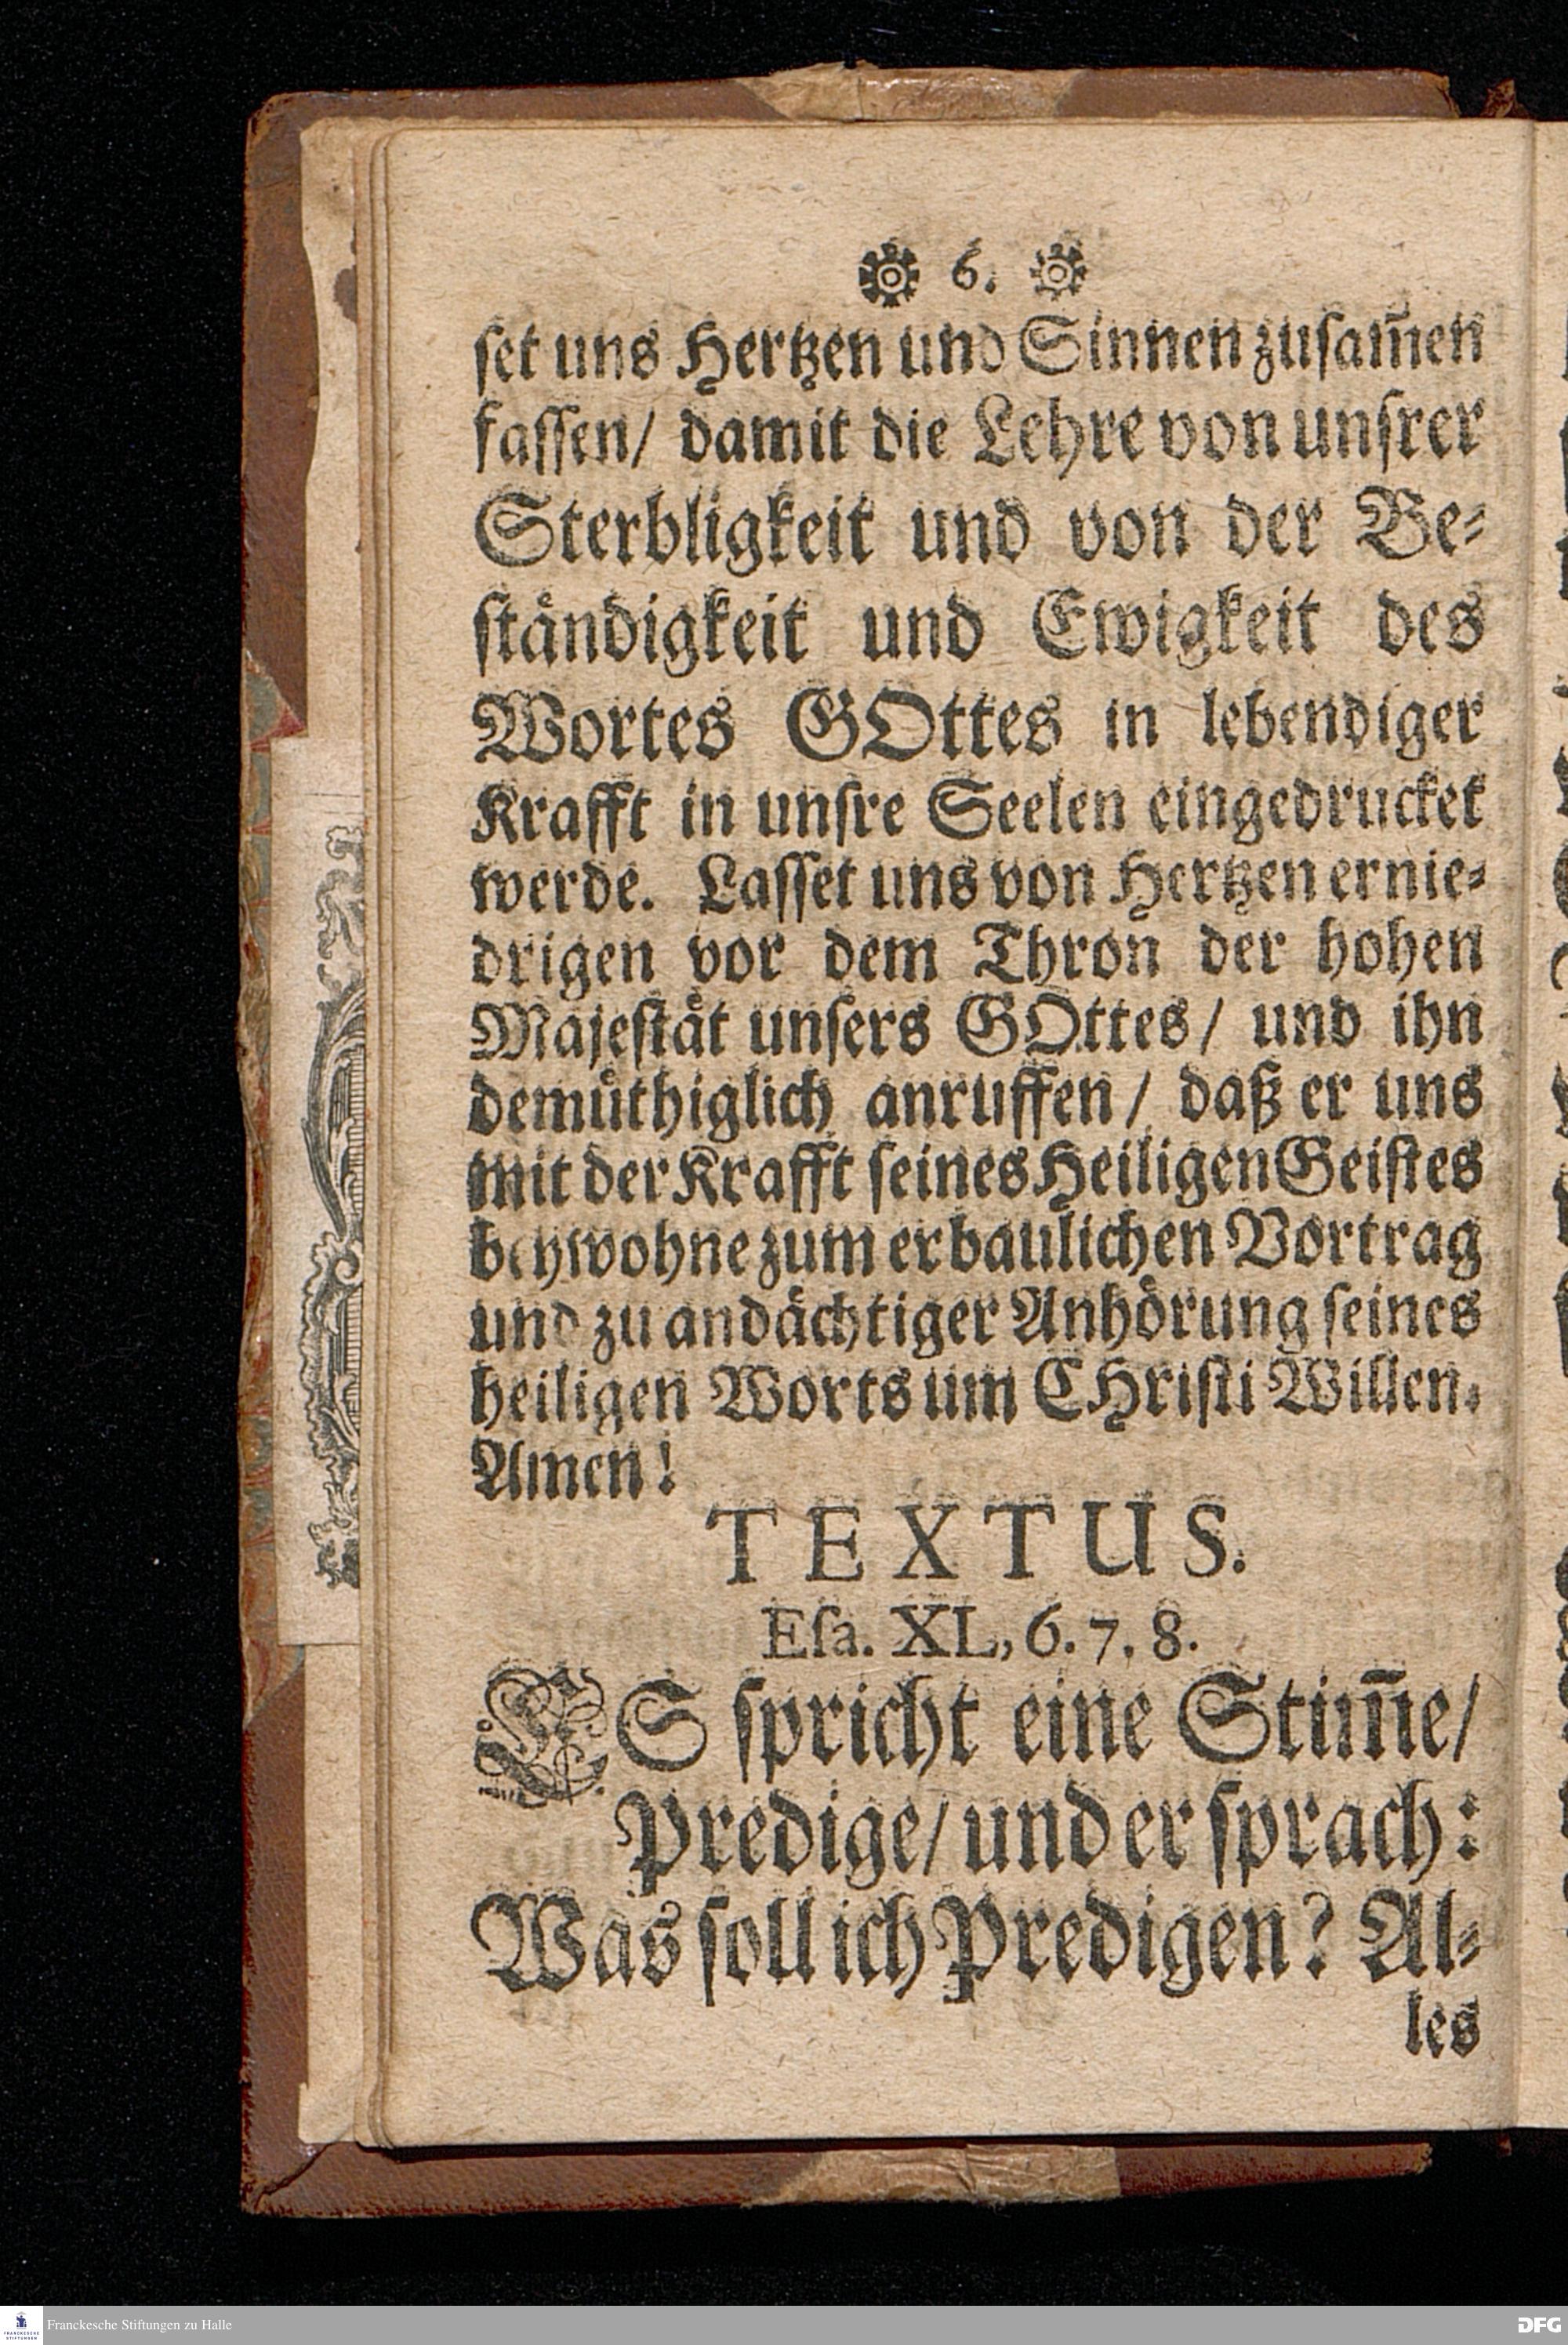 6.
ſet uns Hertzen und Sinnen zuſam̃en
faſſen/ damit die Lehre von unſrer
Sterbligkeit und von der Be⸗
ſtaͤndigkeit und Ewigkeit des
Wortes GOttes in lebendiger
Krafft in unſre Seelen eingedrucket
werde. Laſſet uns von Hertzen ernie⸗
drigen vor dem Thron der hohen
Majeſtaͤt unſers GOttes/ und ihn
demuͤthiglich anruffen/ daß er uns
mit der Krafft ſeines Heiligen Geiſtes
beywohne zum erbaulichen Vortrag
und zu andaͤchtiger Anhoͤrung ſeines
heiligen Worts um CHriſti Willen.
Amen!
TEXTUS.
Eſa. XL, 6. 7. 8.
ES ſpricht eine Stim̃e/
Predige/ und er ſprach:
Was ſoll ich Predigen? Al⸗
les
Franckesche Stiftungen zu Halle
FRANCKESCHE
STIFTUNGEN
DFG